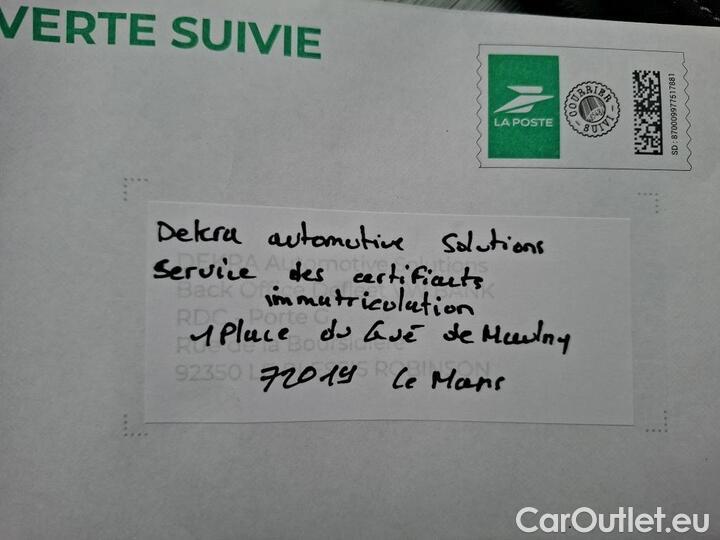 VERTE SUIVIE
LA POSTE
COURRIER SUIVI
SD : 870009977517881
Dekra automotive Solutions
Service des certificats
immatriculation
1 Place du Gué de Maulny
72019 Le Mans
DEKRA Automotive Solutions
Back Office
RDC - Porte G
Rue de la Boursidière
92350 ROBINSON
CarOutlet.eu